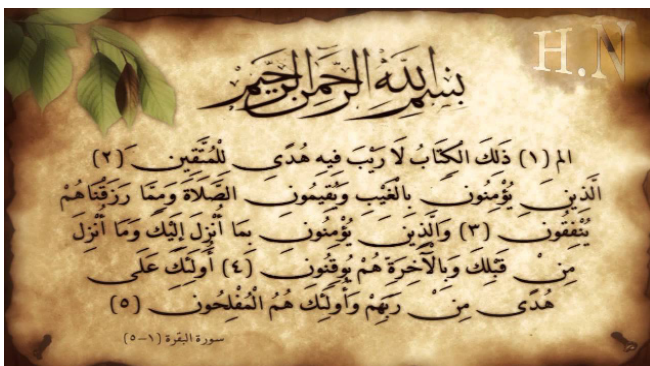 H.N
بسم الله الرحمن الرحيم
الم (١) ذَلِكَ الكِتَابُ لَا رَيْبَ فِيهِ هُدًى لِلْمُتَّقِينَ (٢)
الَّذِينَ يُؤْمِنُونَ بِالْغَيْبِ وَيُقِيمُونَ الصَّلَاةَ وَمِمَّا رَزَقْنَاهُمْ
يُنْفِقُونَ (٣) وَالَّذِينَ يُؤْمِنُونَ بِمَا أُنْزِلَ إِلَيْكَ وَمَا أُنْزِلَ
مِنْ قَبْلِكَ وَبِالْآخِرَةِ هُمْ يُوقِنُونَ (٤) أُولَئِكَ عَلَى
هُدًى مِنْ رَبِّهِمْ وَأُولَئِكَ هُمُ الْمُفْلِحُونَ (٥)
سورة البقرة (١-٥)